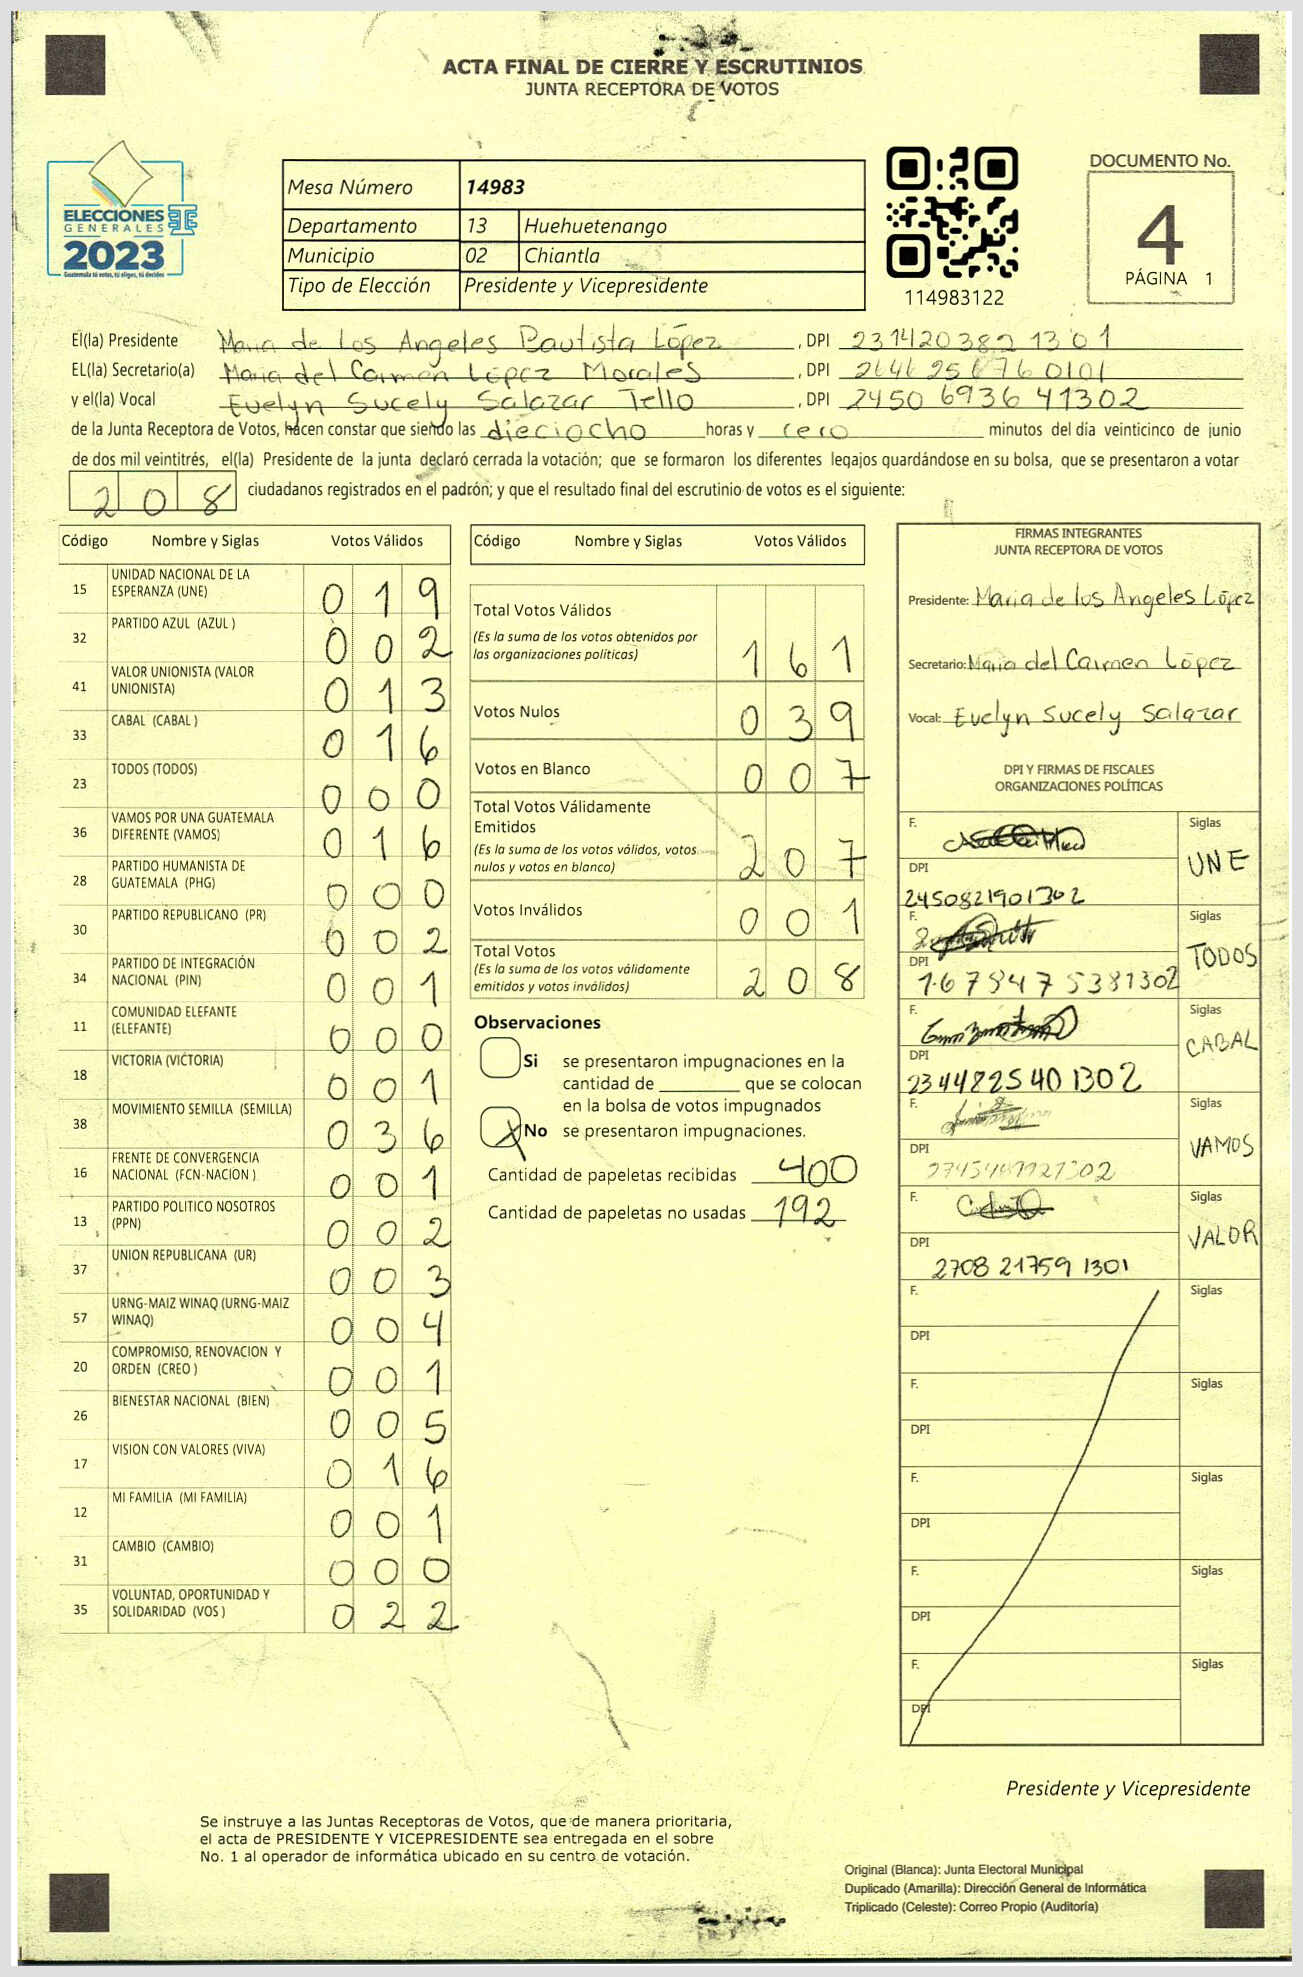 ACTA FINAL DE CIERRE Y ESCRUTINIOS
JUNTA RECEPTORA DE VOTOS
ELECCIONES
GENERALES
2023
Guatemala tú votas, tú eliges, tú decides
Mesa Número 14983
Departamento 13 Huehuetenango
Municipio 02 Chiantla
Tipo de Elección Presidente y Vicepresidente
114983122
DOCUMENTO No.
4
PÁGINA 1
El(la) Presidente Maria de Los Angeles Bautista López, DPI 2314203821301
EL(la) Secretario(a) Maria del Carmen López Morales, DPI
y el(la) Vocal Evelyn Sucely Salazar Tello, DPI 2450 6936 41302
de la Junta Receptora de Votos, hacen constar que siendo las dieciocho horas y cero minutos del día veinticinco de junio
de dos mil veintitrés, el(la) Presidente de la junta declaró cerrada la votación; que se formaron los diferentes legajos guardándose en su bolsa, que se presentaron a votar
208 ciudadanos registrados en el padrón; y que el resultado final del escrutinio de votos es el siguiente:
Código Nombre y Siglas Votos Válidos
15 UNIDAD NACIONAL DE LA ESPERANZA (UNE) 019
32 PARTIDO AZUL (AZUL ) 002
41 VALOR UNIONISTA (VALOR UNIONISTA) 013
33 CABAL (CABAL ) 016
23 TODOS (TODOS) 000
36 VAMOS POR UNA GUATEMALA DIFERENTE (VAMOS) 016
28 PARTIDO HUMANISTA DE GUATEMALA (PHG) 000
30 PARTIDO REPUBLICANO (PR) 002
34 PARTIDO DE INTEGRACIÓN NACIONAL (PIN) 001
11 COMUNIDAD ELEFANTE (ELEFANTE) 000
18 VICTORIA (VICTORIA) 001
38 MOVIMIENTO SEMILLA (SEMILLA) 036
16 FRENTE DE CONVERGENCIA NACIONAL (FCN-NACION ) 001
13 PARTIDO POLITICO NOSOTROS (PPN) 002
37 UNION REPUBLICANA (UR) 003
57 URNG-MAIZ WINAQ (URNG-MAIZ WINAQ) 004
20 COMPROMISO, RENOVACION Y ORDEN (CREO ) 001
26 BIENESTAR NACIONAL (BIEN) 005
17 VISION CON VALORES (VIVA) 016
12 MI FAMILIA (MI FAMILIA) 001
31 CAMBIO (CAMBIO) 000
35 VOLUNTAD, OPORTUNIDAD Y SOLIDARIDAD (VOS ) 022
Código Nombre y Siglas Votos Válidos
Total Votos Válidos 161
(Es la suma de los votos obtenidos por
las organizaciones politicas)
Votos Nulos 039
Votos en Blanco 007
Total Votos Válidamente
Emitidos 207
(Es la suma de los votos válidos, votos
nulos y votos en blanco)
Votos Inválidos 001
Total Votos 208
(Es la suma de los votos válidamente
emitidos y votos inválidos)
Observaciones
Si se presentaron impugnaciones en la
cantidad de ________ que se colocan
en la bolsa de votos impugnados
X No se presentaron impugnaciones.
Cantidad de papeletas recibidas 400
Cantidad de papeletas no usadas 192
FIRMAS INTEGRANTES
JUNTA RECEPTORA DE VOTOS
Presidente: Maria de los Angeles López
Secretario: Maria del Carmen López
Vocal: Evelyn Sucely Salazar
DPI Y FIRMAS DE FISCALES
ORGANIZACIONES POLÍTICAS
F. Siglas UNE
DPI 2450821901302
F. Siglas TODOS
DPI 1678475381302
F. Siglas CABAL
DPI 23448225401302
F. Siglas VAMOS
DPI
F. Siglas VALOR
DPI 2708 21759 1301
F. Siglas
DPI
F. Siglas
DPI
F. Siglas
DPI
F. Siglas
DPI
F. Siglas
DPI
Presidente y Vicepresidente
Se instruye a las Juntas Receptoras de Votos, que de manera prioritaria,
el acta de PRESIDENTE Y VICEPRESIDENTE sea entregada en el sobre
No. 1 al operador de informática ubicado en su centro de votación.
Original (Blanca): Junta Electoral Municipal
Duplicado (Amarilla): Dirección General de Informática
Triplicado (Celeste): Correo Propio (Auditoría)